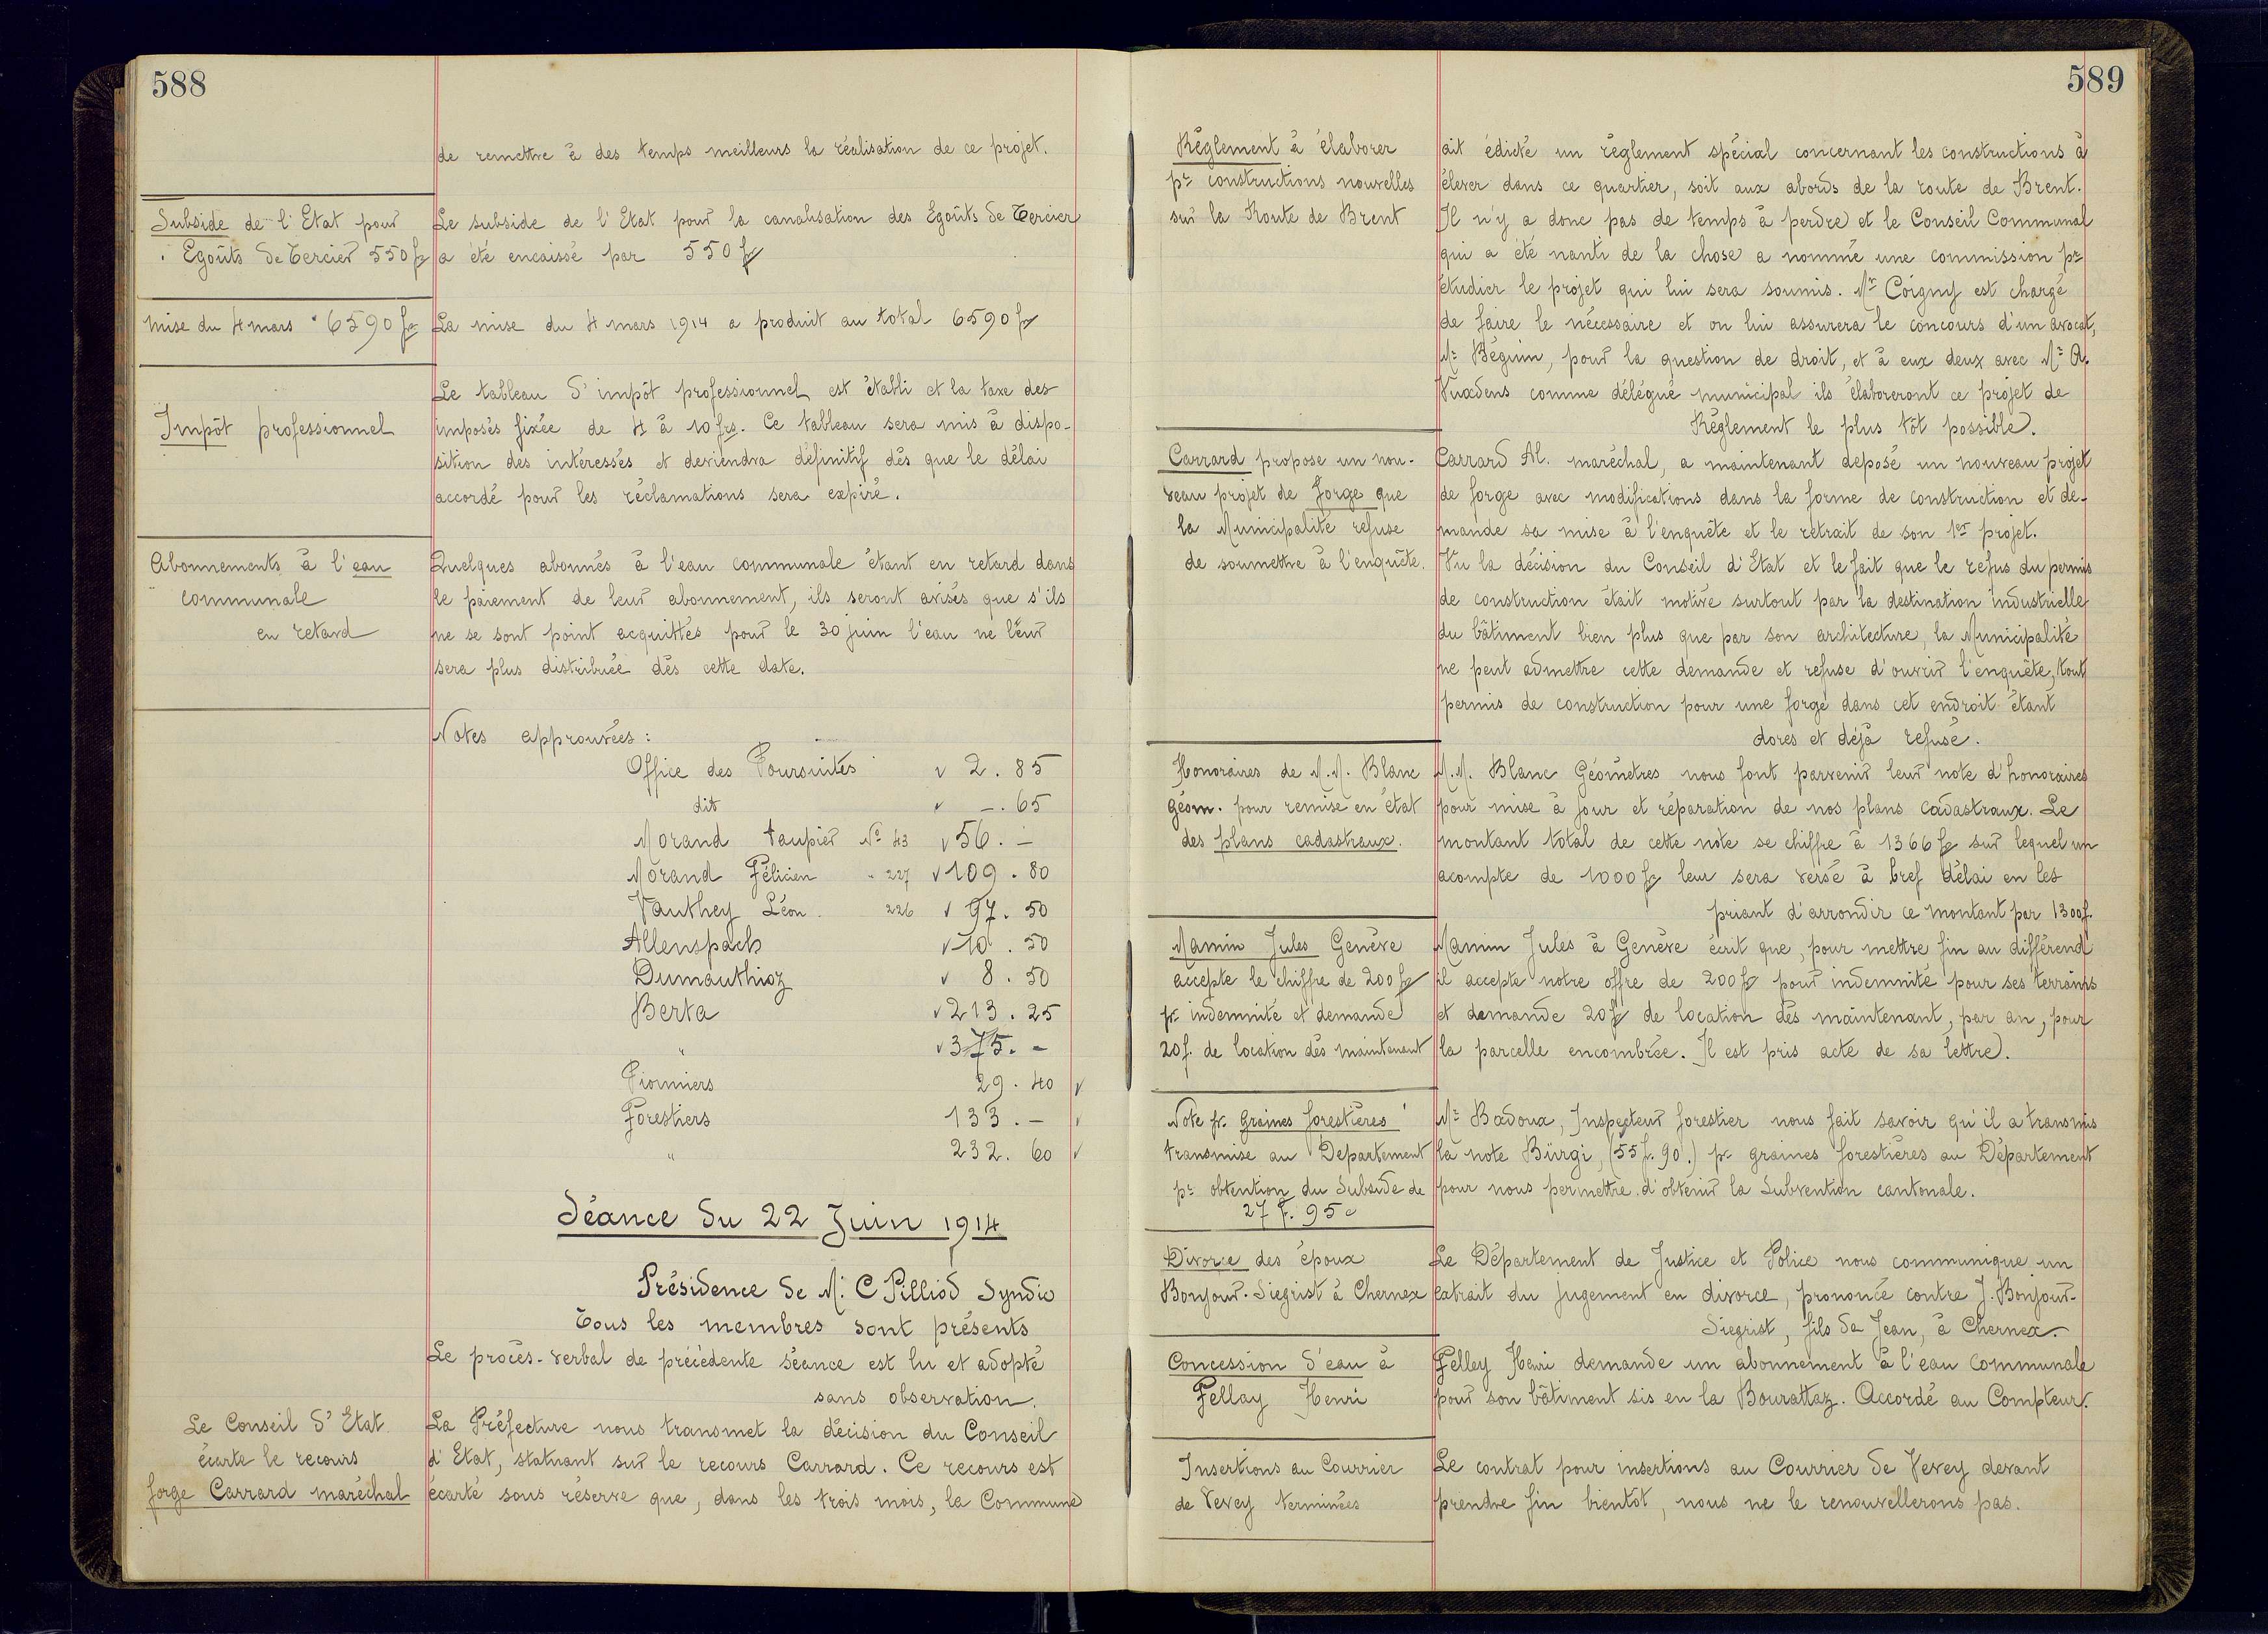 588
de remettre à des temps meilleurs la réalisation de ce projet.
Subside de l'Etat pour
Egoûts de Tercier 550 fr
Le subside de l'Etat pour la canalisation des Egoûts de Tercier
a été encaissé par 550 fr
Mise du 4 mars 6590 fr
La mise du 4 mars 1914 a produit au total 6590 fr
Impôt professionnel
Le tableau d'impôt professionnel est établi et la taxe des
imposés fixée de 4 à 10 frs. Ce tableau sera mis à dispo-
sition des intéressés et deviendra définitif dès que le délai
accordé pour les réclamations sera expiré.
Abonnements à l'eau
communale
en retard
Quelques abonnés à l'eau communale étant en retard dans
le paiement de leur abonnement, ils seront avisés que s'ils
ne se sont point acquittés pour le 30 juin l'eau ne leur
sera plus distribuée dès cette date.
Notes approuvées :
Office des Poursuites v 2. 85
dit v –. 65
Morand taupier No 43 v 56. –
Morand Félicien " 227 v 109. 80
Vauthey Léon 226 v 97. 50
Allenspach v 10. 50
Dumauthioz v 8. 50
Berta v 213. 25
" v 375. –
Pionniers 29. 40 v
Forestiers 133. – v
" 232. 60 v
Séance du 22 Juin 1914
Présidence de M. C Pilliod Syndic
Tous les membres sont présents
Le procès-verbal de précédente séance est lu et adopté
sans observation.
Le Conseil d'Etat
écarte le recours
forge Carrard maréchal
La Préfecture nous transmet la décision du Conseil
d'Etat, statuant sur le recours Carrard. Ce recours est
écarté sous réserve que, dans les trois mois, la Commune
589
Règlement à élaborer
pr constructions nouvelles
sur la Route de Brent
ait édicté un règlement spécial concernant les constructions à
élever dans ce quartier, soit aux abords de la route de Brent.
Il n'y a donc pas de temps à perdre et le Conseil Communal
qui a été nanti de la chose a nommé une commission pr
étudier le projet qui lui sera soumis. Mr Coigny est chargé
de faire le nécessaire et on lui assurera le concours d'un avocat,
Mr Béguin, pour la question de droit, et à eux deux avec Mr A.
Vuadens comme délégué municipal ils élaboreront ce projet de
Règlement le plus tôt possible.
Carrard propose un nou-
veau projet de forge que
la Municipalité refuse
de soumettre à l'enquête.
Carrard Al. maréchal, a maintenant déposé un nouveau projet
de forge avec modifications dans la forme de construction et de-
mande sa mise à l'enquête et le retrait de son 1er projet.
Vu la décision du Conseil d'Etat et le fait que le refus du permis
de construction était motivé surtout par la destination industrielle
du bâtiment bien plus que par son architecture, la Municipalité
ne peut admettre cette demande et refuse d'ouvrir l'enquête, tout
permis de construction pour une forge dans cet endroit étant
dores et déjà refusé.
Honoraires de M.M. Blanc
géom. pour remise en état
des plans cadastraux.
M.M. Blanc Géomètres nous font parvenir leur note d'honoraires
pour mise à jour et réparation de nos plans cadastraux. Le
montant total de cette note se chiffre à 1366 fr sur lequel un
acompte de 1000 fr leur sera versé à bref délai en les
priant d'arrondir ce montant par 1300 f.
Mamin Jules Genève
accepte le chiffre de 200 fr
pr indemnité et demande
20 f. de location dès maintenant
Mamin Jules à Genève écrit que, pour mettre fin au différend
il accepte notre offre de 200 fr pour indemnité pour ses terrains
et demande 20 fr de location dès maintenant, par an, pour
la parcelle encombrée. Il est pris acte de sa lettre.
Note pr. graines forestières
transmise au Departement
pr obtention du Subside de
27 f. 95 c
Mr Badoux, Inspecteur forestier nous fait savoir qu'il a transmis
la note Bürgi, (55 f. 90.) pr graines forestières au Département
pour nous permettre d'obtenir la Subvention cantonale.
Divorce des époux
Bonjour-Siegrist à Chernex
Le Département de Justice et Police nous communique un
extrait du jugement en divorce, prononcé contre J. Bonjour-
Siegrist, fils de Jean, à Chernex.
Concession d'eau à
Fellay Henri
Felley Henri demande un abonnement à l'eau communale
pour son bâtiment sis en la Bourattaz. Accordé au Compteur.
Insertions au Courrier
de Vevey terminées
Le contrat pour insertions au Courrier de Vevey devant
prendre fin bientôt, nous ne le renouvellerons pas.